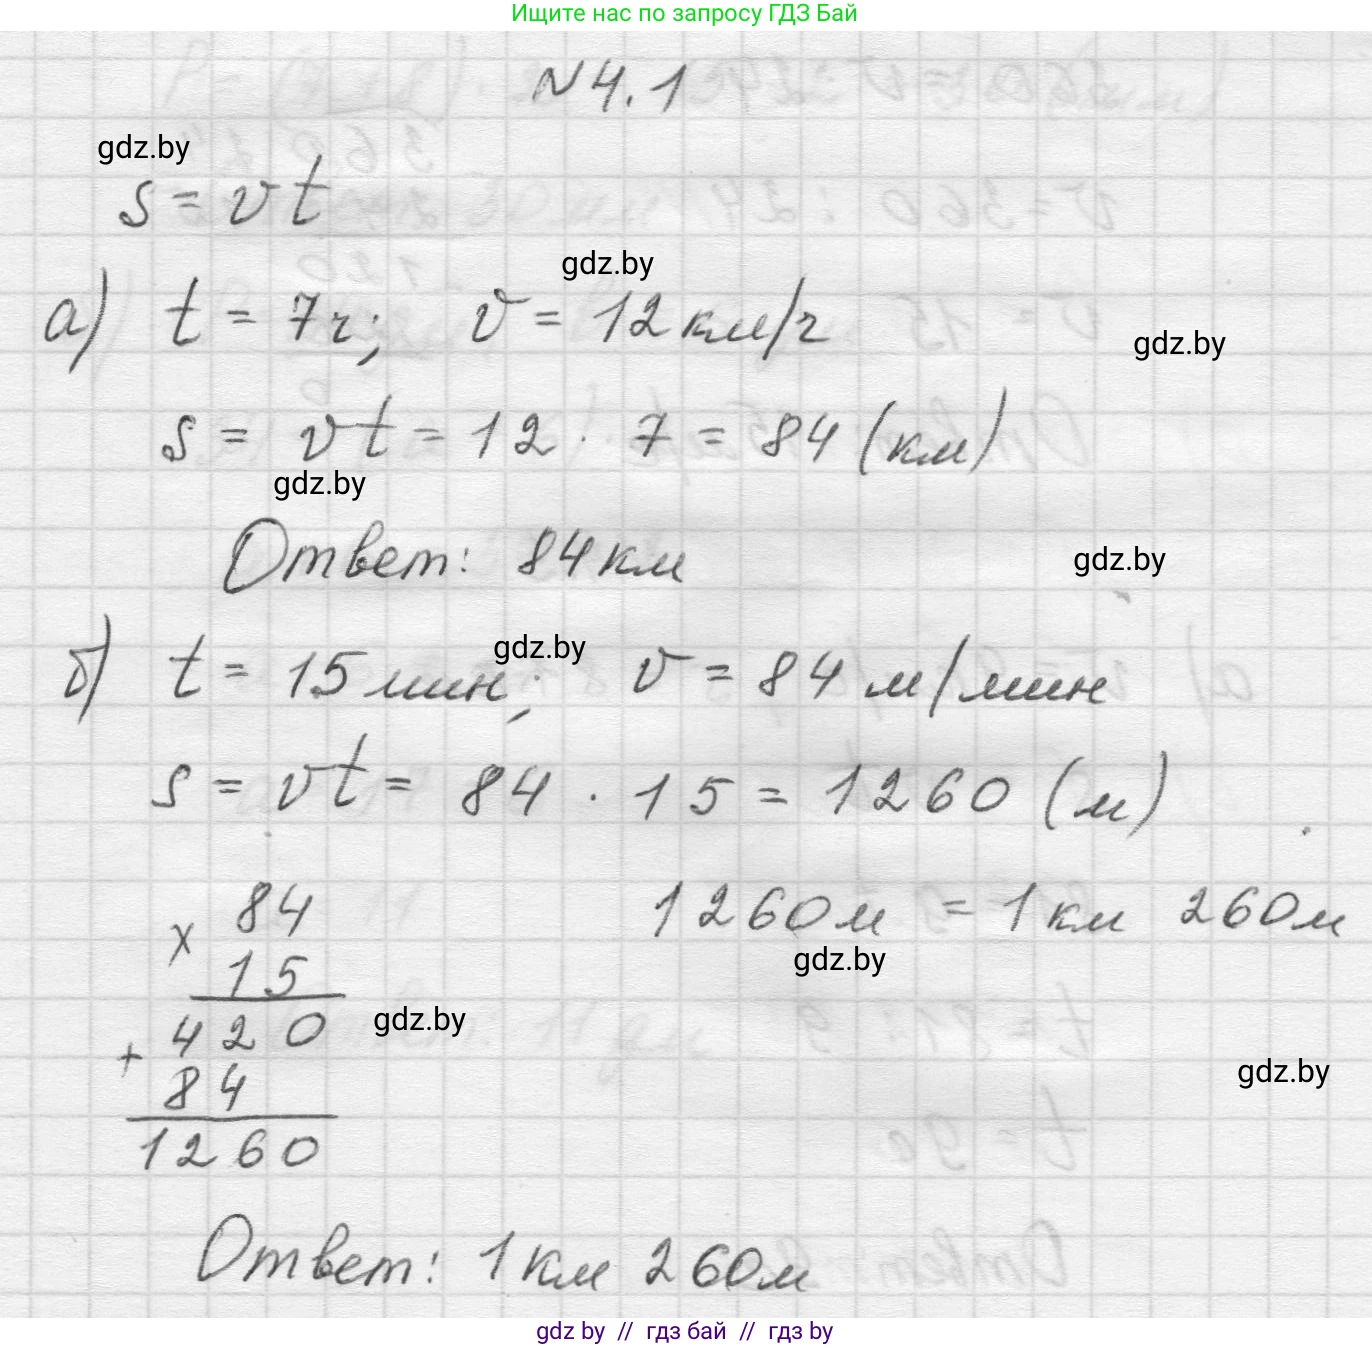 Ищите нас по запросу ГДЗ Бай
N4.1
gdz.by
s = vt
gdz.by
а) t = 7ч; v = 12 км/ч
gdz.by
s = vt = 12 · 7 = 84 (км)
gdz.by
Ответ: 84 км
gdz.by
gdz.by
б) t = 15 мин; v = 84 м/мин
s = vt = 84 · 15 = 1260 (м)
84
1260м = 1 км 260м
x
gdz.by
15
gdz.by
420
+
gdz.by
84
1260
Ответ: 1 км 260м
gdz by // гдз бай // гдз by